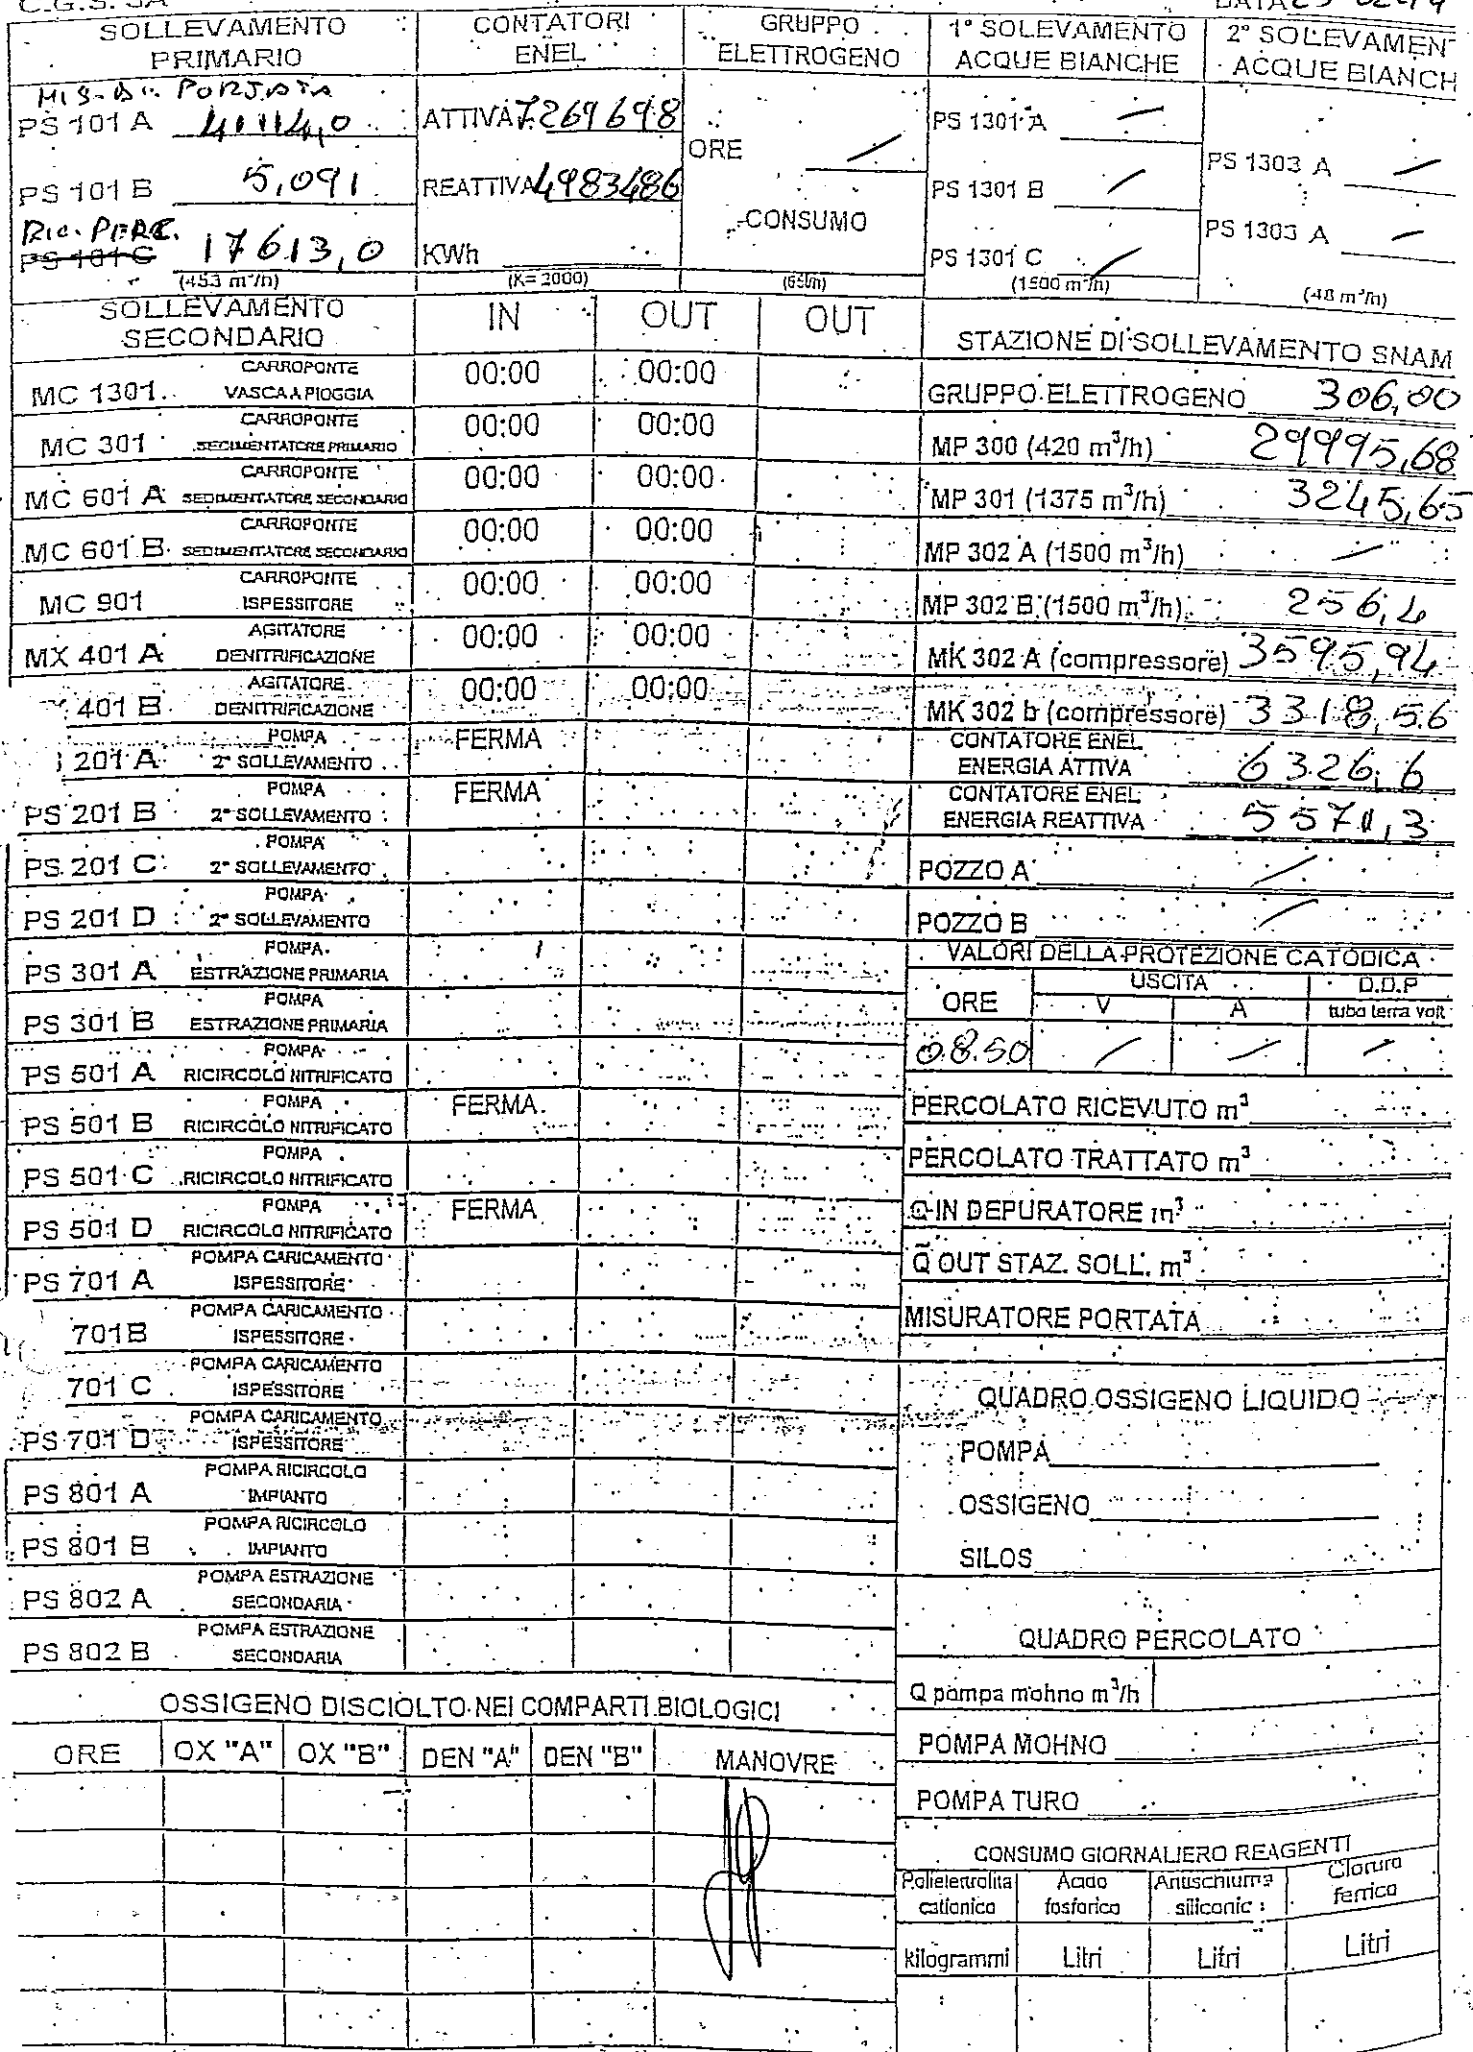 SOLLEVAMENTO PRIMARIO
CONTATORI ENEL
GRUPPO ELETTROGENO
1° SOLEVAMENTO ACQUE BIANCHE
2° SOLEVAMEN ACQUE BIANCH
PS 101 A 41114,0
ATTIVA 7269698
ORE /
PS 1301 A /
PS 1303 A /
PS 101 B 5,091
REATTIVA 4983486
CONSUMO
PS 1301 B /
PS 1303 A /
RIC. PERC.
PS 101 C 17613,0
KWh
PS 1301 C /
(453 m³/h)
(K= 2000)
(1500 m³/h)
(48 m³/h)
SOLLEVAMENTO SECONDARIO
IN OUT OUT
MC 1301 CARROPONTE VASCA A PIOGGIA 00:00 00:00
MC 301 CARROPONTE SEDIMENTATORE PRIMARIO 00:00 00:00
MC 601 A CARROPONTE SEDIMENTATORE SECONDARIO 00:00 00:00
MC 601 B CARROPONTE SEDIMENTATORE SECONDARIO 00:00 00:00
MC 901 CARROPONTE ISPESSITORE 00:00 00:00
MX 401 A AGITATORE DENITRIFICAZIONE 00:00 00:00
401 B AGITATORE DENITRIFICAZIONE 00:00 00:00
201 A POMPA 2° SOLLEVAMENTO FERMA
PS 201 B POMPA 2° SOLLEVAMENTO FERMA
PS 201 C POMPA 2° SOLLEVAMENTO
PS 201 D POMPA 2° SOLLEVAMENTO
PS 301 A POMPA ESTRAZIONE PRIMARIA
PS 301 B POMPA ESTRAZIONE PRIMARIA
PS 501 A POMPA RICIRCOLO NITRIFICATO
PS 501 B POMPA RICIRCOLO NITRIFICATO FERMA
PS 501 C POMPA RICIRCOLO NITRIFICATO
PS 501 D POMPA RICIRCOLO NITRIFICATO FERMA
PS 701 A POMPA CARICAMENTO ISPESSITORE
701B POMPA CARICAMENTO ISPESSITORE
701 C POMPA CARICAMENTO ISPESSITORE
PS 701 D POMPA CARICAMENTO ISPESSITORE
PS 801 A POMPA RICIRCOLO IMPIANTO
PS 801 B POMPA RICIRCOLO IMPIANTO
PS 802 A POMPA ESTRAZIONE SECONDARIA
PS 802 B POMPA ESTRAZIONE SECONDARIA
OSSIGENO DISCIOLTO NEI COMPARTI BIOLOGICI
ORE OX "A" OX "B" DEN "A" DEN "B" MANOVRE
STAZIONE DI SOLLEVAMENTO SNAM
GRUPPO ELETTROGENO 306,00
MP 300 (420 m³/h) 29995,68
MP 301 (1375 m³/h) 3245,65
MP 302 A (1500 m³/h) /
MP 302 B (1500 m³/h) 256,4
MK 302 A (compressore) 3595,94
MK 302 b (compressore) 3318,56
CONTATORE ENEL
ENERGIA ATTIVA 6326,6
CONTATORE ENEL
ENERGIA REATTIVA 5571,3
POZZO A /
POZZO B /
VALORI DELLA PROTEZIONE CATODICA
ORE USCITA D.D.P
V A tubo terra volt
08.50 / / /
PERCOLATO RICEVUTO m³
PERCOLATO TRATTATO m³
Q IN DEPURATORE m³
Q OUT STAZ. SOLL. m³
MISURATORE PORTATA
QUADRO OSSIGENO LIQUIDO
POMPA
OSSIGENO
SILOS
QUADRO PERCOLATO
Q pompa mohno m³/h
POMPA MOHNO
POMPA TURO
CONSUMO GIORNALIERO REAGENTI
Polielettrolita cationico
Acido fosforico
Antischiuma siliconic
Cloruro ferrico
kilogrammi Litri Litri Litri